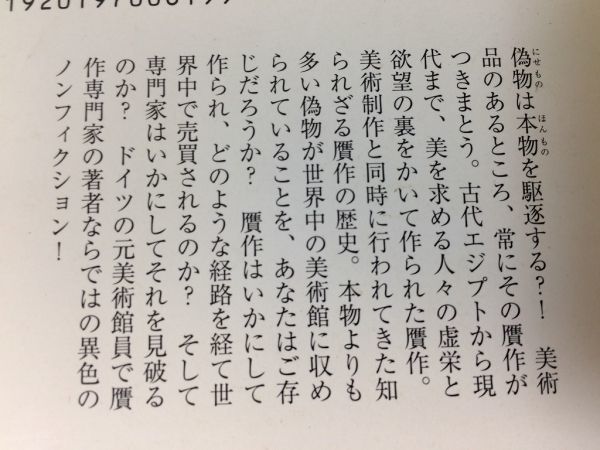 1920197000199
偽物は本物を駆逐する?! 美術
にせもの ほんもの
品のあるところ、常にその贋作が
つきまとう。古代エジプトから現
代まで、美を求める人々の虚栄と
欲望の裏をかいて作られた贋作。
美術制作と同時に行われてきた知
られざる贋作の歴史。本物よりも
多い偽物が世界中の美術館に収め
られていることを、あなたはご存
じだろうか? 贋作はいかにして
作られ、どのような経路を経て世
界中で売買されるのか? そして
専門家はいかにしてそれを見破る
のか? ドイツの元美術館員で贋
作専門家の著者ならではの異色の
ノンフィクション!